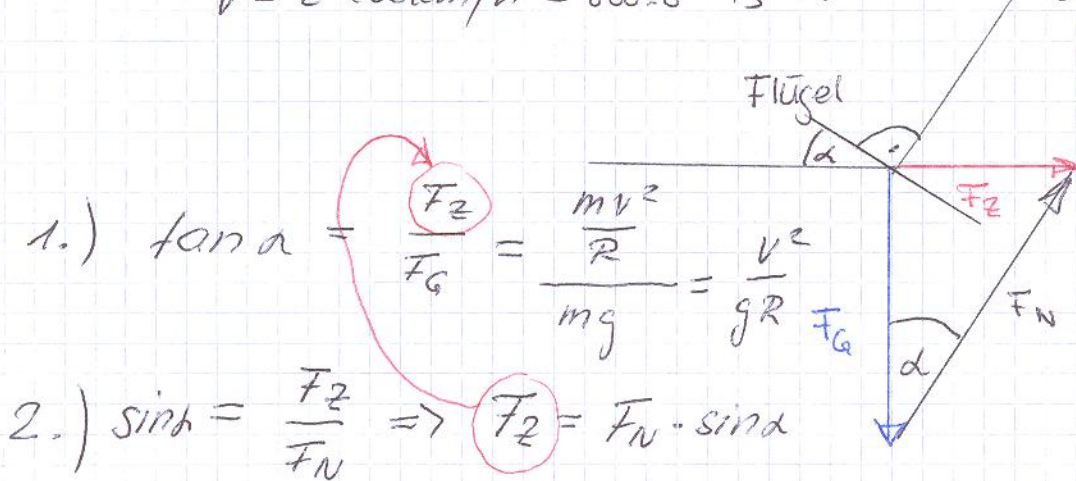 Flügel
α
F_Z
1.) tan α = F_Z / F_G = (mv² / R) / mg = v² / gR
F_G
F_N
α
2.) sin α = F_Z / F_N => F_Z = F_N · sin α